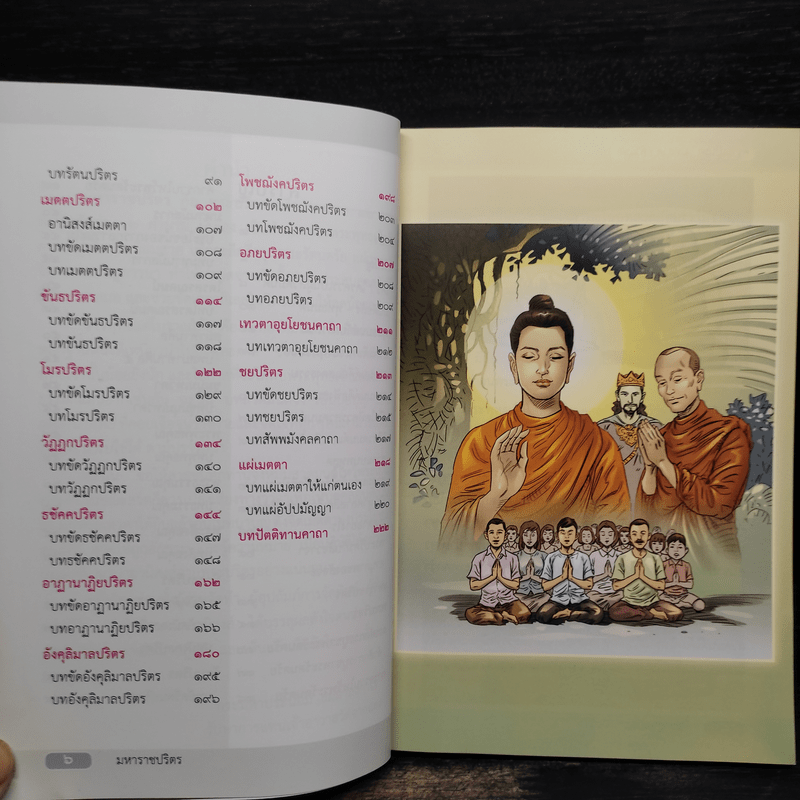 บทรัตนปริตร ๙๑
เมตตปริตร ๑๐๒
อานิสงส์เมตตา ๑๐๗
บทขัดเมตตปริตร ๑๐๘
บทเมตตปริตร ๑๐๙
ขันธปริตร ๑๑๔
บทขัดขันธปริตร ๑๑๗
บทขันธปริตร ๑๑๘
โมรปริตร ๑๒๒
บทขัดโมรปริตร ๑๒๙
บทโมรปริตร ๑๓๐
วัฏฏกปริตร ๑๓๔
บทขัดวัฏฏกปริตร ๑๔๐
บทวัฏฏกปริตร ๑๔๑
ธชัคคปริตร ๑๔๔
บทขัดธชัคคปริตร ๑๔๗
บทธชัคคปริตร ๑๔๘
อาฏานาฏิยปริตร ๑๖๒
บทขัดอาฏานาฏิยปริตร ๑๖๕
บทอาฏานาฏิยปริตร ๑๖๖
อังคุลิมาลปริตร ๑๘๐
บทขัดอังคุลิมาลปริตร ๑๙๕
บทอังคุลิมาลปริตร ๑๙๖
โพชฌังคปริตร ๑๙๘
บทขัดโพชฌังคปริตร ๒๐๓
บทโพชฌังคปริตร ๒๐๔
อภยปริตร ๒๐๗
บทขัดอภยปริตร ๒๐๘
บทอภยปริตร ๒๐๙
เทวตาอุยโยชนคาถา ๒๑๑
บทเทวตาอุยโยชนคาถา ๒๑๒
ชยปริตร ๒๑๓
บทขัดชยปริตร ๒๑๔
บทชยปริตร ๒๑๕
บทสัพพมังคลคาถา ๒๑๗
แผ่เมตตา ๒๑๘
บทแผ่เมตตาให้แก่ตนเอง ๒๑๙
บทแผ่อัปปมัญญา ๒๒๐
บทปัตติทานคาถา ๒๒๒
๖ มหาราชปริตร